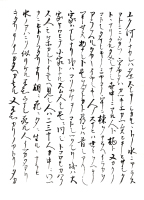 ユク河ノナカレハ絶エスシテシカモヽトノ水ニアラス
ヨトミニウカフウタカタハカツキエカツムスヒテヒサシク
トヽマリタルタメシナシ世中ニアル人ト栖ト又カクノ
コトシタマシキノミヤコノウチニ棟ヲナラヘイラカヲ
アラソヘルタカキイヤシキ人ノスマヒハ世々ヲヘテツキセ
ヌ物ナレト是ヲマコトカト尋レハ昔シアリシ
家ハマレナリ或ハコソヤケテコトシツクレリ或ハ大
家ホロヒテ小家トナルスム人モ是ニ同シトコロモカハラ
ス人モヲホカレトイニシヘ見シ人ハ二三十人カ中ニワツカ
ニヒトリフタリナリ朝ニ死ニ夕ニ生ルヽナラヒタヽ
水ノアハニソ似リケル不知ウマレ死ル人イツカタヨリ
キタリテイツカタヘカ去ル又不知カリノヤトリタカ